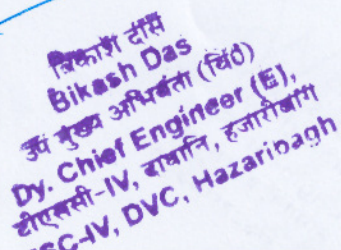 बिकाश दास
Bikash Das
उप मुख्य अभियंता (वि०)
Dy. Chief Engineer (E),
टीएससी-IV, दाघानि, हजारीबाग
SC-IV, DVC, Hazaribagh